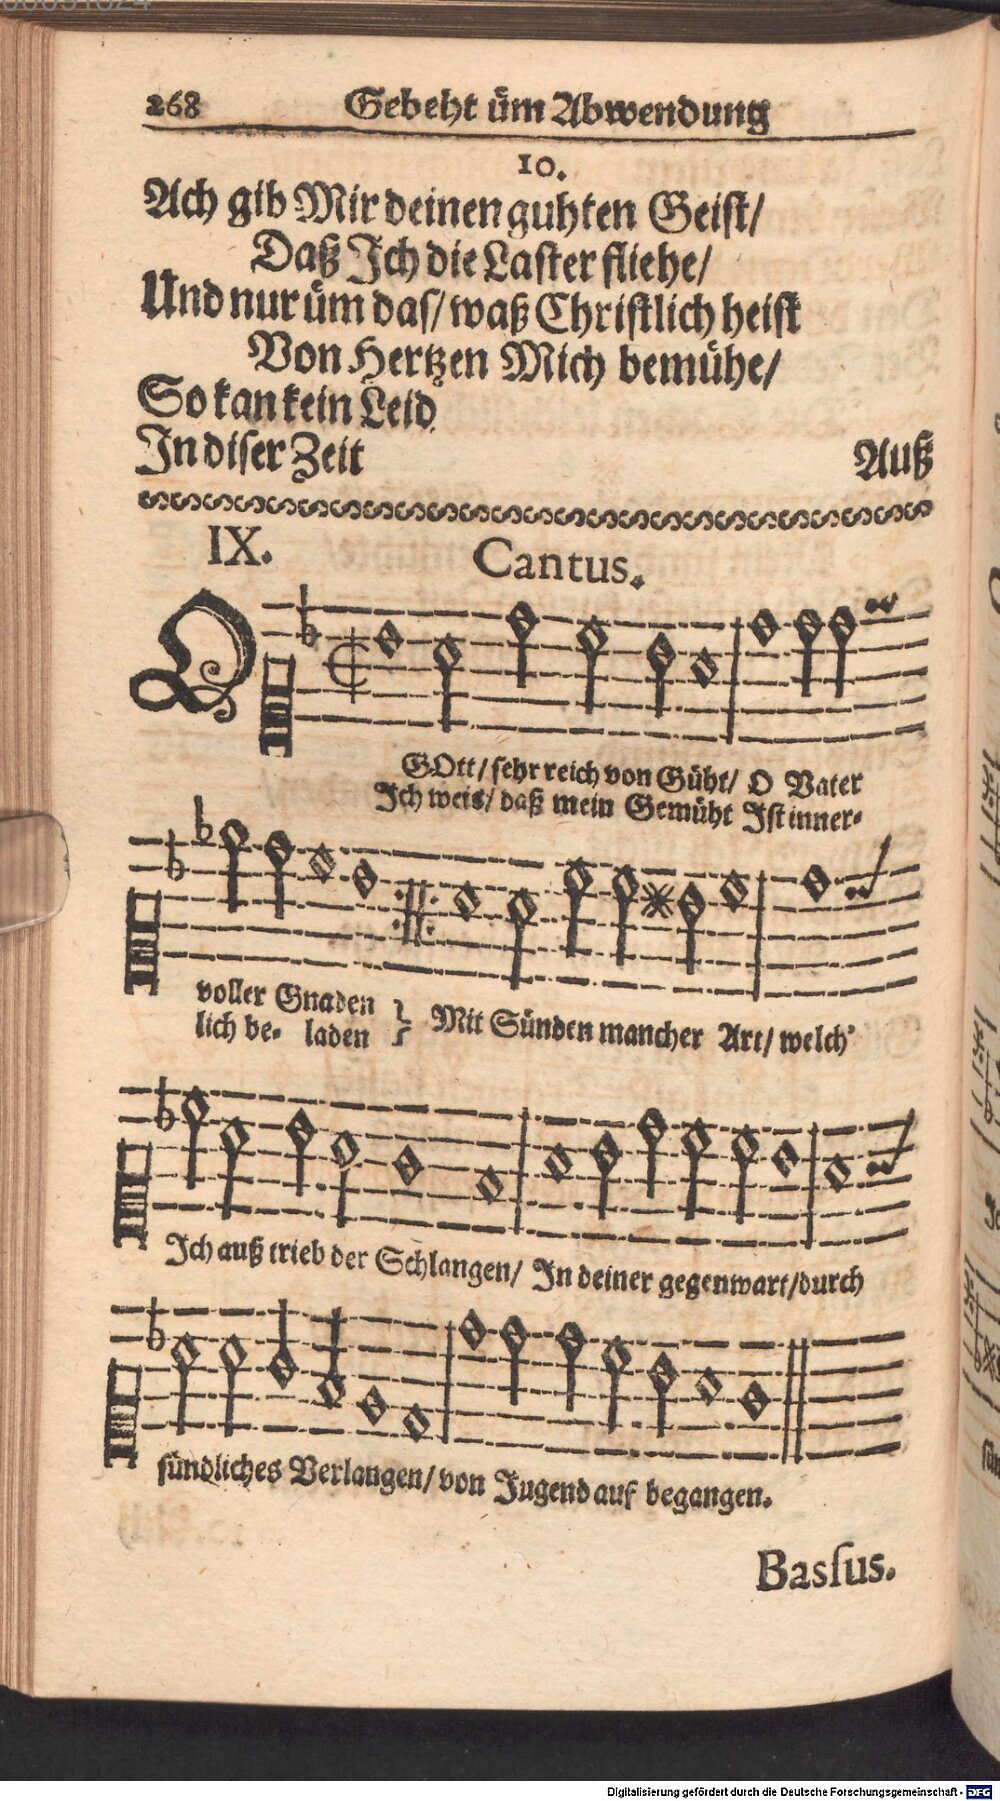 268 Gebeht üm Abwendung
10.
Ach gib Mir deinen guhten Geist/
Daß Ich die Laster fliehe/
Und nur üm das/ waß Christlich heist
Von Hertzen Mich bemühe/
So kan kein Leid
In diser Zeit Auß
IX. Cantus.
O
GOtt/ sehr reich von Güht/ O Vater
Ich weis/ daß mein Gemüht Ist inner-
voller Gnaden } Mit Sünden mancher Art/ welch'
lich be- laden
Ich auß trieb der Schlangen/ In deiner gegenwart/ durch
sündliches Verlangen/ von Jugend auf begangen.
Bassus.
Digitalisierung gefördert durch die Deutsche Forschungsgemeinschaft - DFG